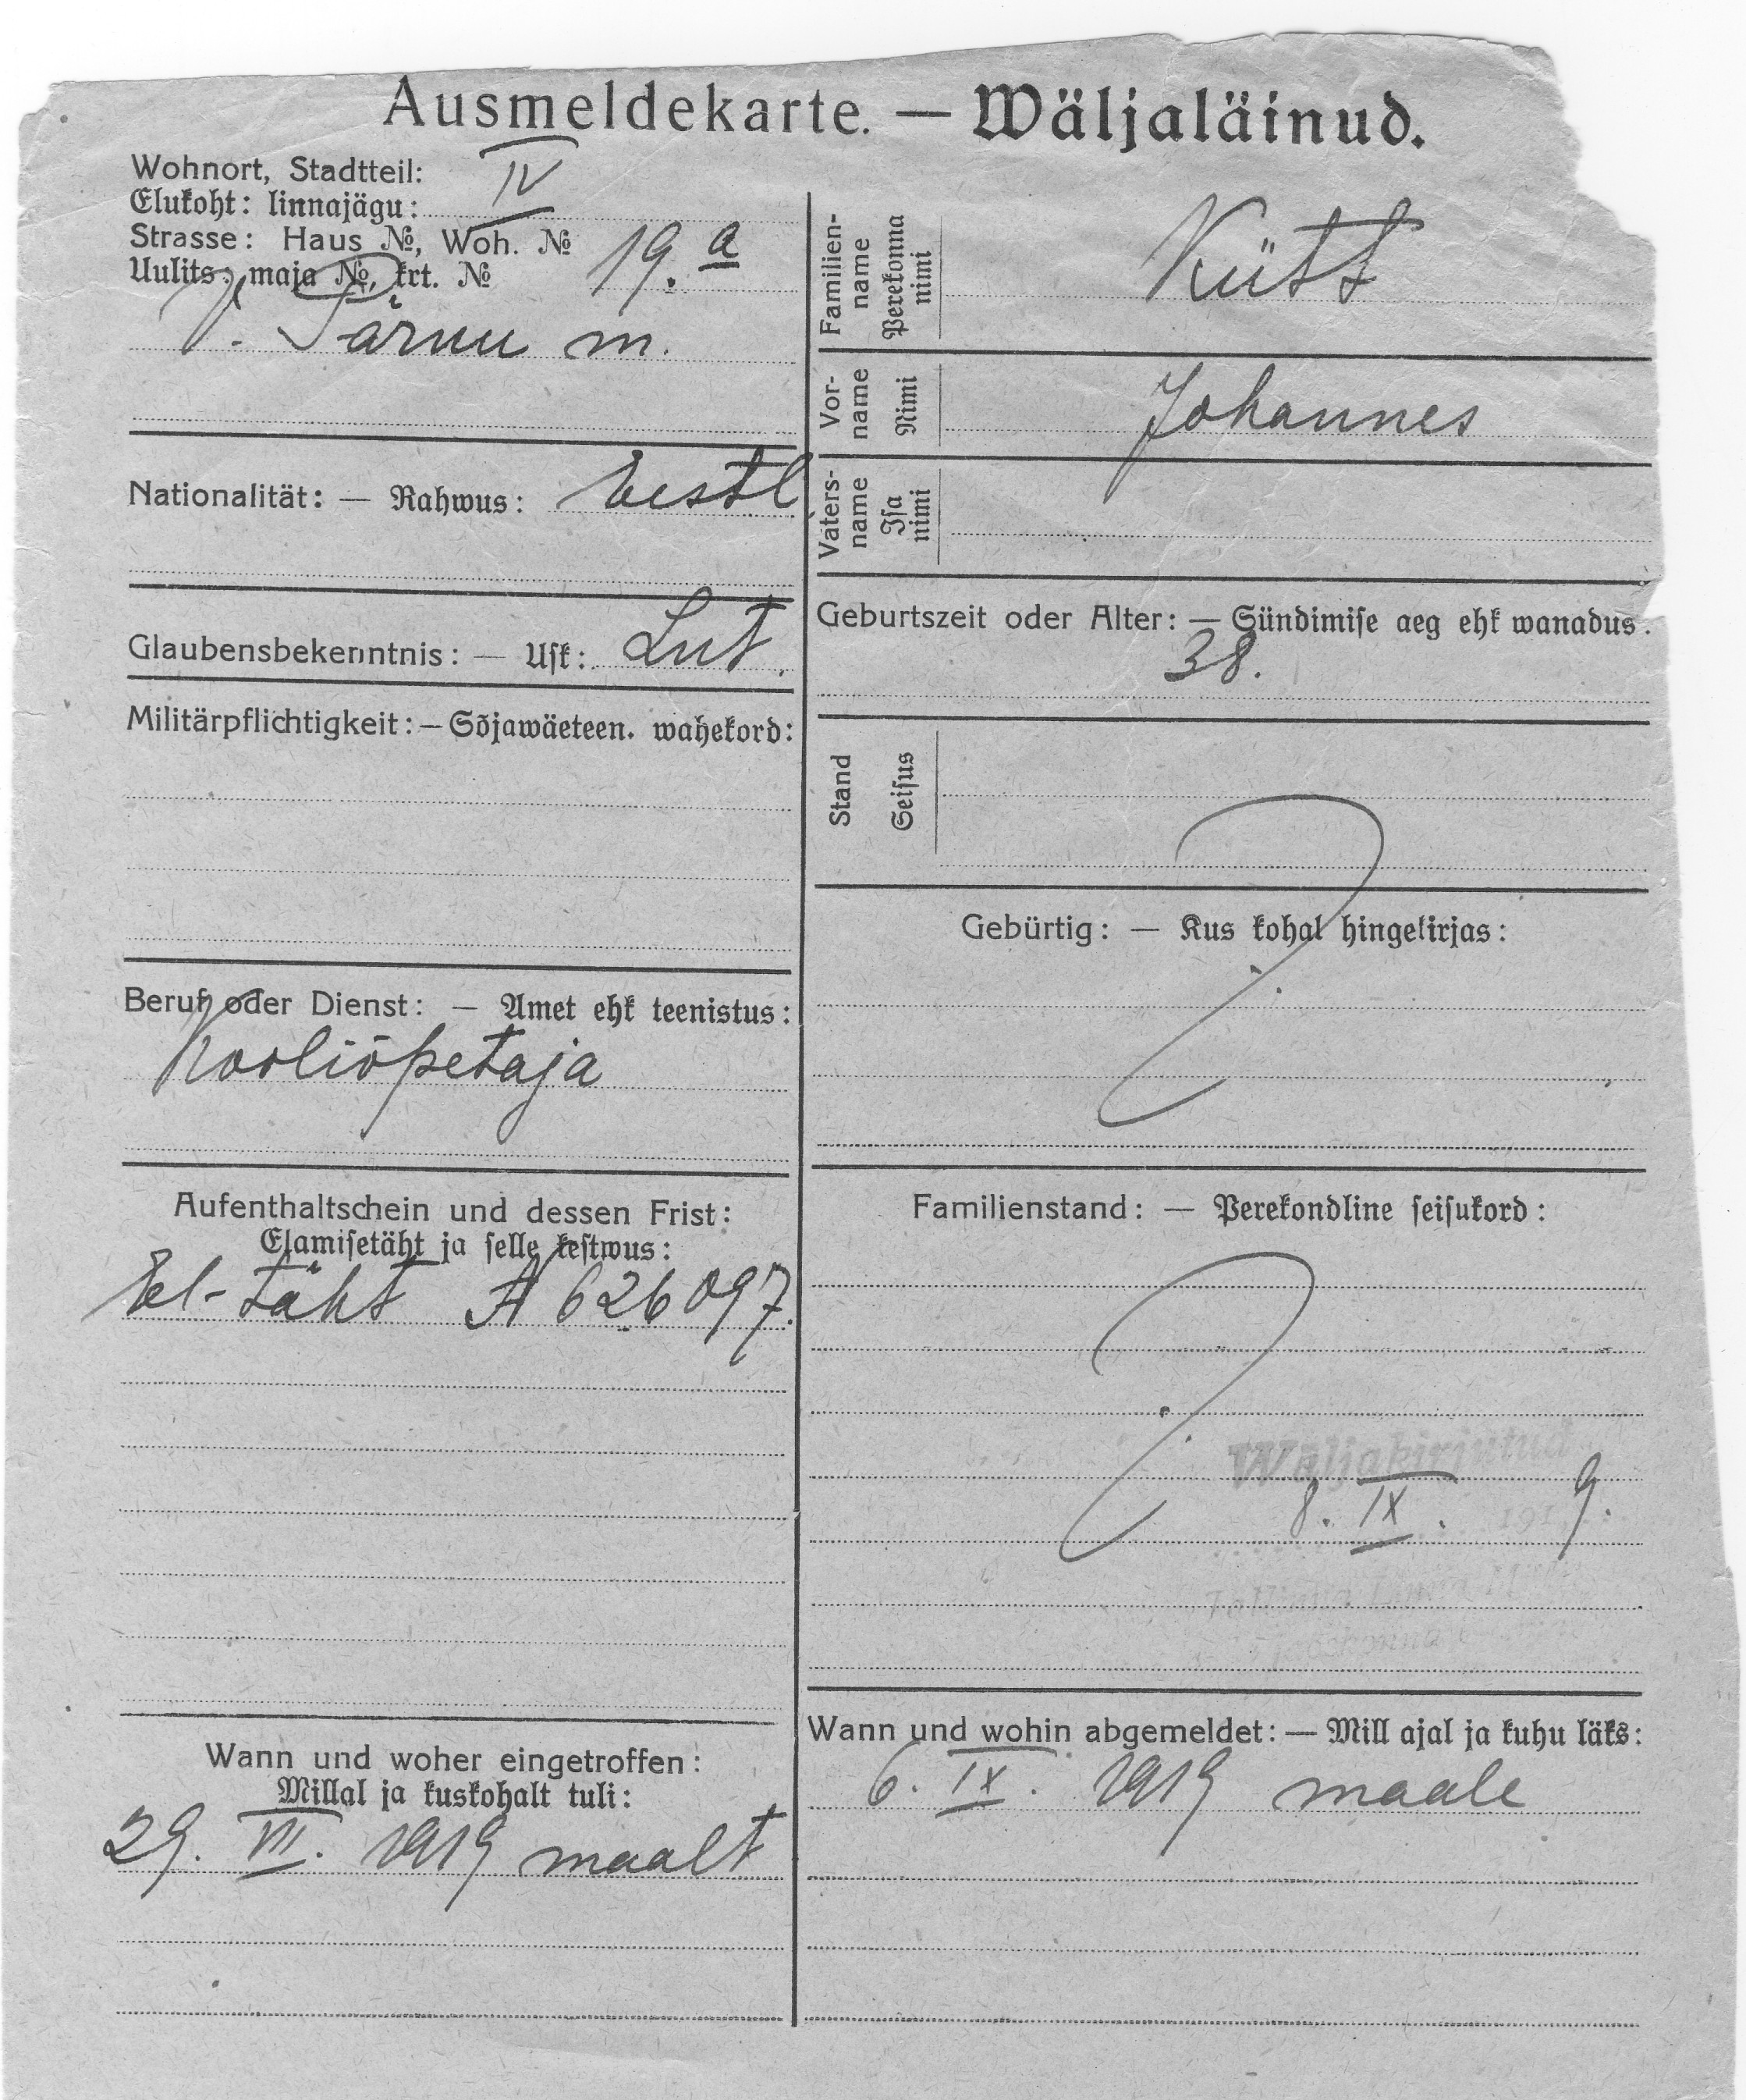 Ausmeldekarte. — Wäljaläinud.
Wohnort, Stadtteil:
Elukoht: linnajägu: IV
Strasse: Haus №, Woh. №
Uulits; maja №, krt. № 19. a
V. Pärnu m.
Nationalität: — Rahwus: Eestl
Glaubensbekenntnis: — Usk: Lut.
Militärpflichtigkeit: — Sõjawäeteen. wahekord:
Beruf oder Dienst: — Amet ehk teenistus:
Kooliõpetaja
Aufenthaltschein und dessen Frist:
Elamisetäht ja selle kestwus:
El-täht A 626097.
Wann und woher eingetroffen:
Millal ja kuskohalt tuli:
29. VII. 1919 maalt
Familien-
name
Perekonna
nimi
Kütt
Vor-
name
Nimi
Johannes
Vaters-
name
Isa
nimi
Geburtszeit oder Alter: — Sündimise aeg ehk wanadus.
38.
Stand
Seisus
Gebürtig: — Kus kohal hingekirjas:
Familienstand: — Perekondline seisukord:
Wäljakirjutud
8. IX. 1919.
Tallinna Linna
Wann und wohin abgemeldet: — Mill ajal ja kuhu läks:
6. IX. 1919 maale